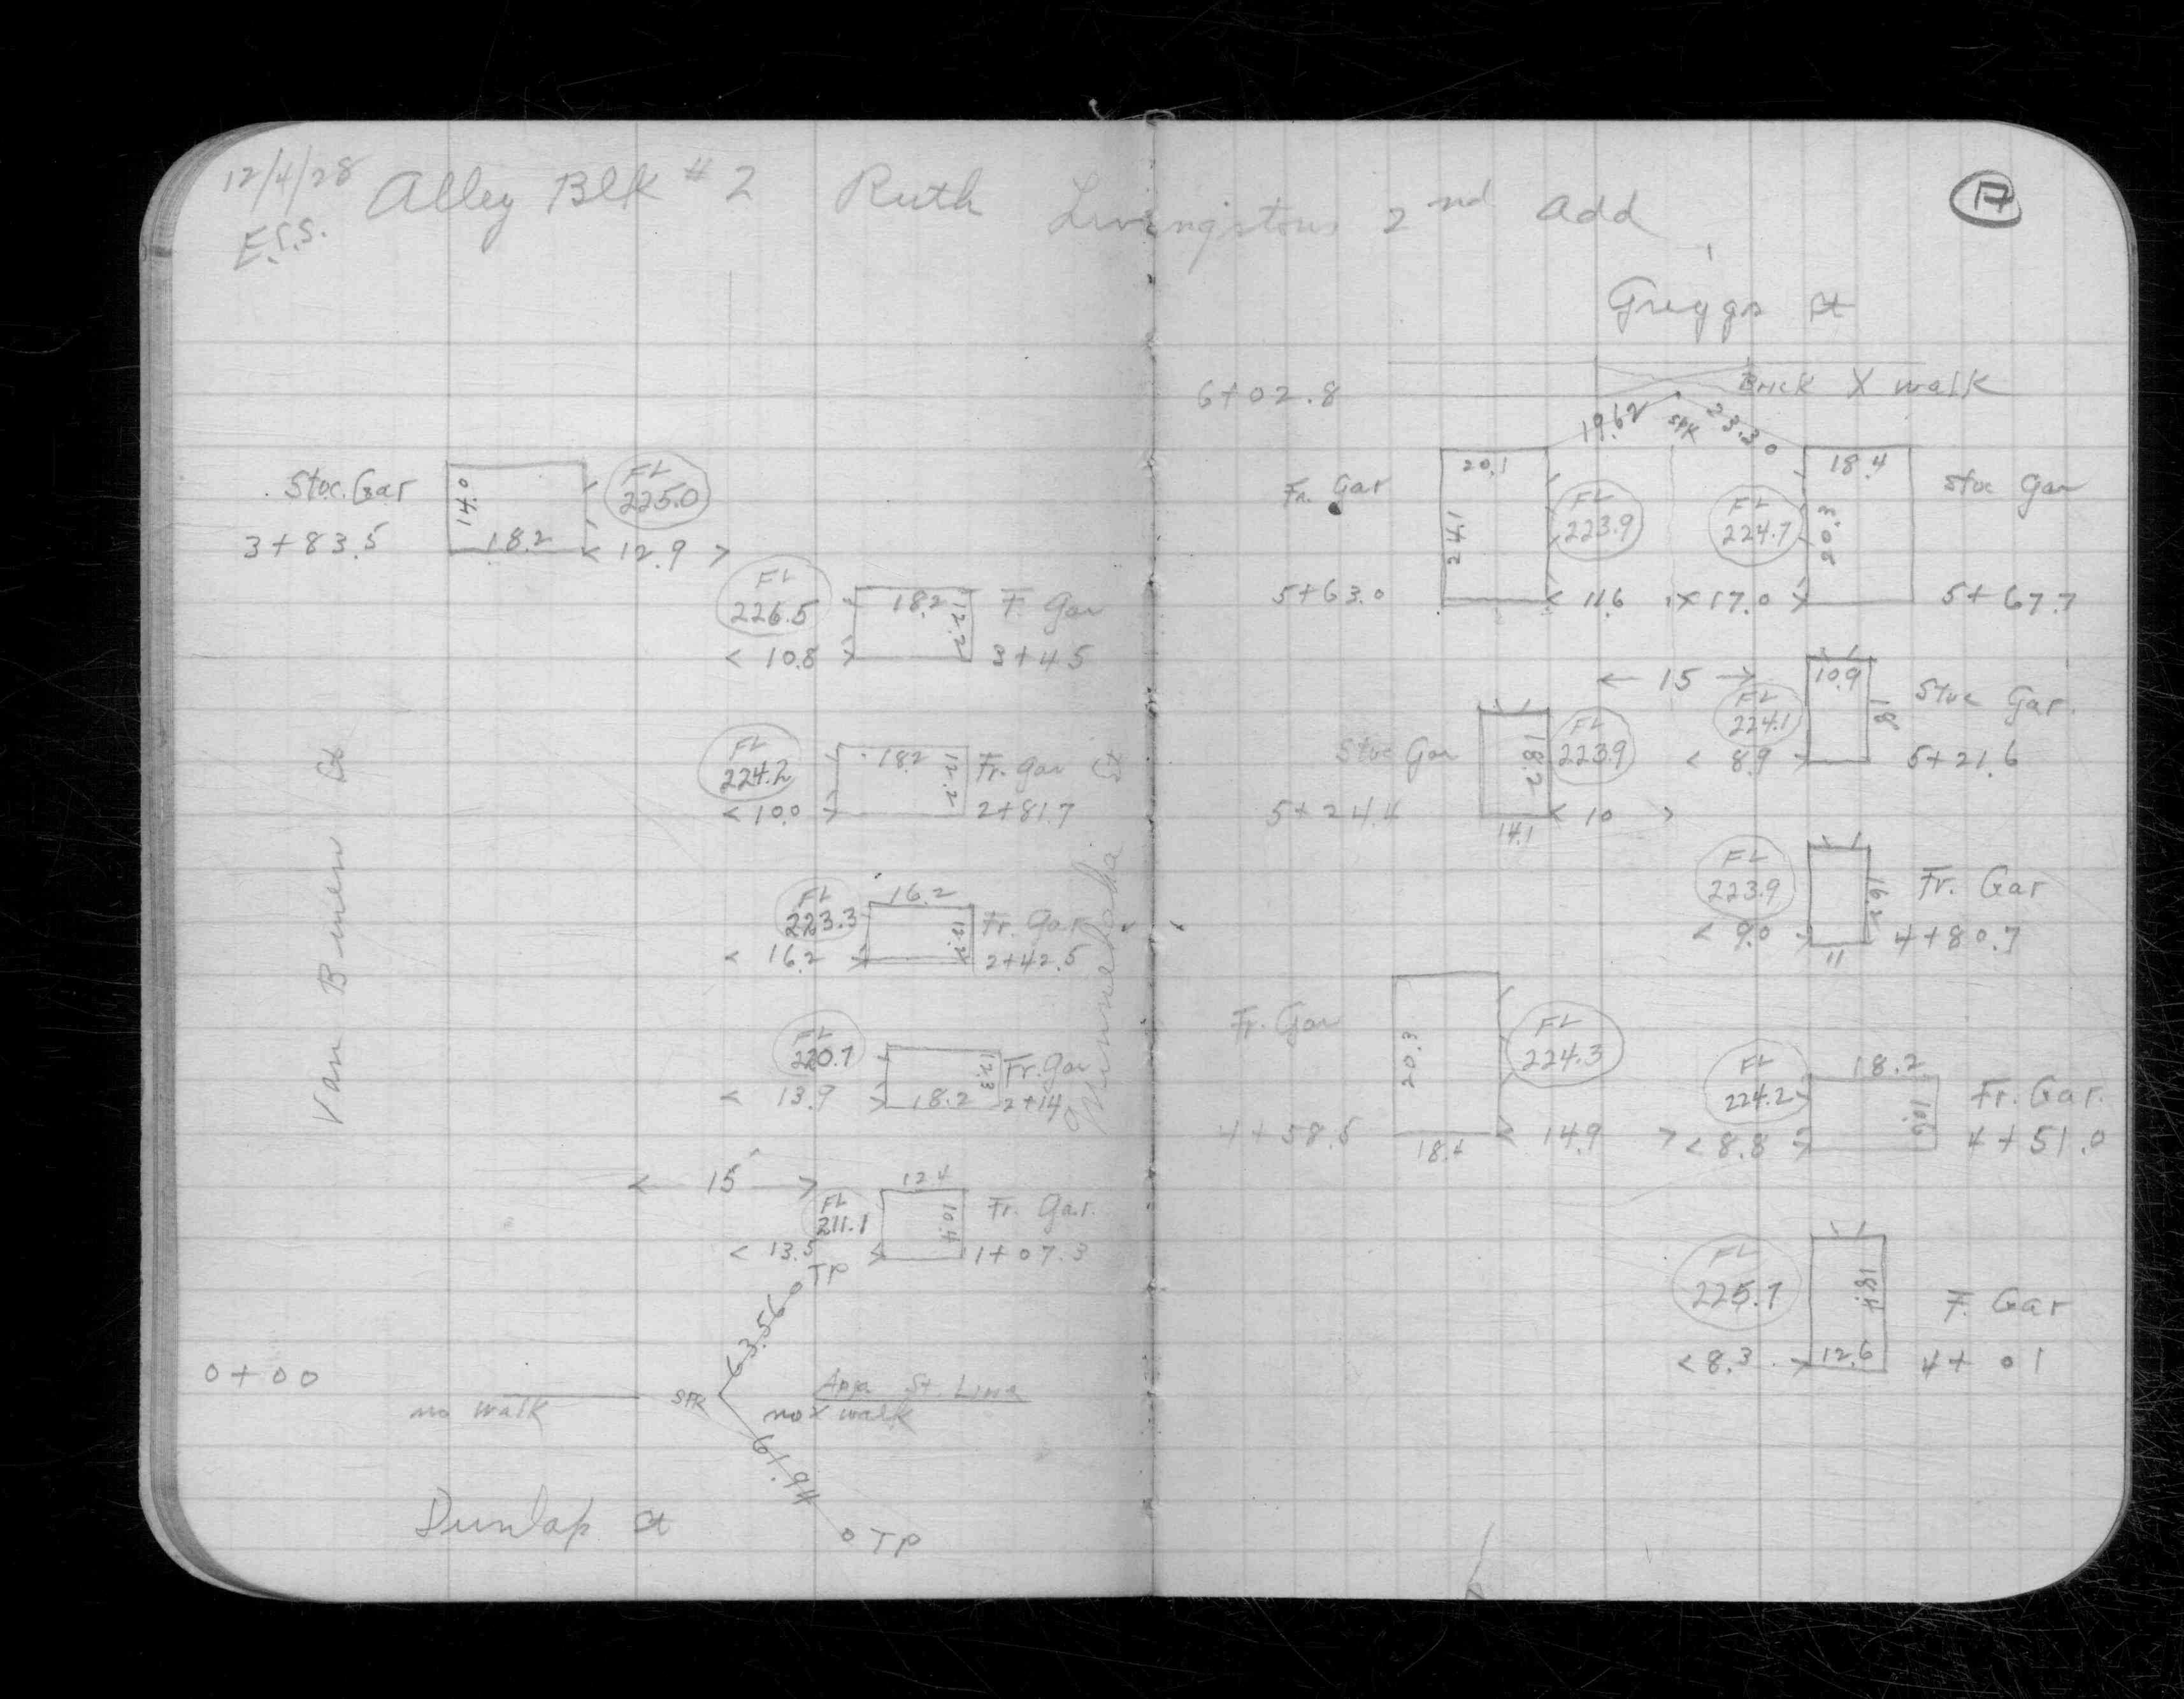 12/4/28 Alley Blk #2 Ruth Livingstons 2nd Add 17
E.S.S.
Stuc. Gar
14.0
FL
225.0
3+83.5
18.2
< 12.9 >
FL
226.5
18.2
12.2
F. Gar
< 10.8 >
3+45
FL
224.2
18.2
12.2
Fr. Gar
St
< 10.0 >
2+81.7
16.2
FL
223.3
12.2
Fr. Gar
< 16.2 >
2+42.5
FL
220.7
12.3
Fr. Gar
< 13.9 >
18.2
2+14
Van Buren St
Minnehaha
< 15 >
12.4
FL
211.1
10.4
Fr. Gar.
< 13.5 >
1+07.3
TP
63.56
0+00
no walk
SPK
App. St. Line
no X walk
Dunlap St
TP
Griggs St
6+02.8
Brick X walk
19.62
SPK
23.30
20.1
18.4
Fr. Gar
24.1
FL
223.9
FL
224.7
20.3
Stuc Gar
5+63.0
< 11.6 × 17.0 >
5+67.7
← 15 →
10.9
FL
224.1
18
Stuc Gar.
< 8.9 >
5+21.6
Stuc Gar
18.2
FL
223.9
5+24.4
14.1
< 10 >
FL
223.9
16.2
Fr. Gar
< 9.0 >
11
4+80.7
Fr. Gar
20.3
FL
224.3
4+58.5
18.4
< 14.9 >
18.2
FL
224.2
10.6
Fr. Gar.
< 8.8 >
4+51.0
FL
225.7
18.4
F. Gar
< 8.3 >
12.6
4+01